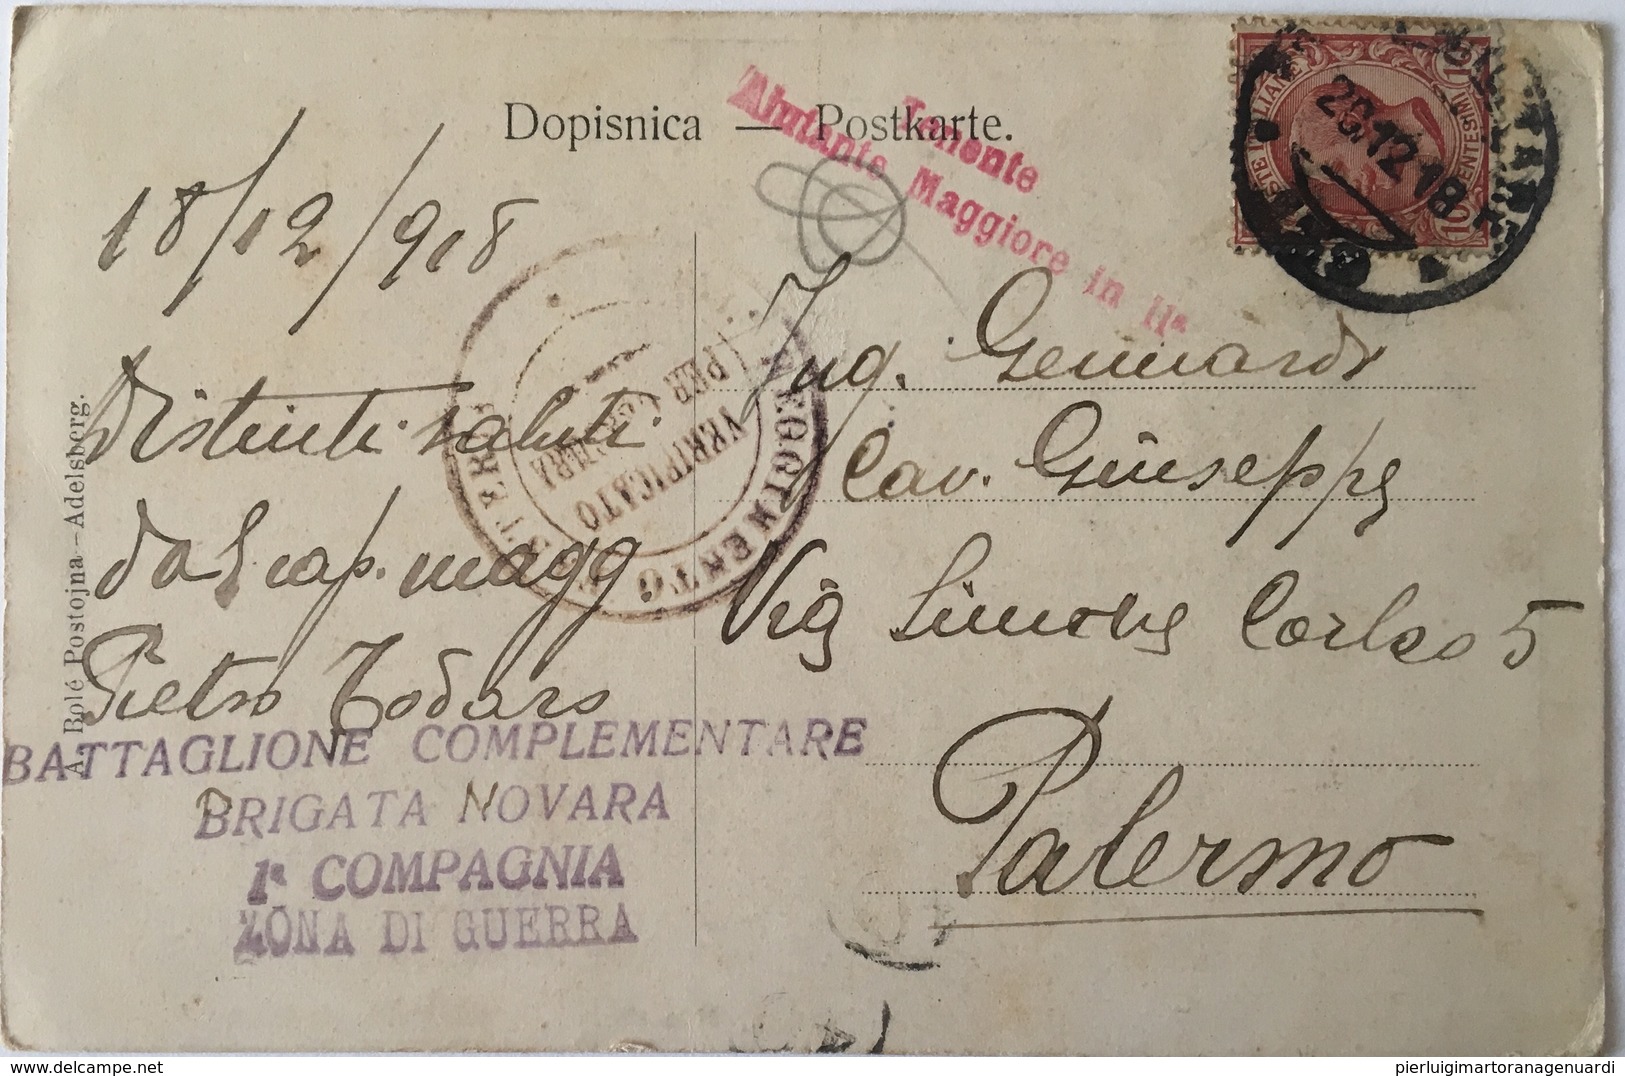 Dopisnica — Postkarte.
Tenente
Aiutante Maggiore in IIª
POSTE ITALIANE
CENTESIMI
10 10
20.12.18
18/12/918
Distinti saluti
dal cap. magg
Pietro Todaro
Ing. Gennardi
Cav. Giuseppe
Via Simone Corleo 5
Palermo
VERIFICATO
PER CENSURA
REGGIMENTO
BATTAGLIONE COMPLEMENTARE
BRIGATA NOVARA
1ª COMPAGNIA
ZONA DI GUERRA
A. Bolé Postojna—Adelsberg.
pierluigimartoranagenuardi